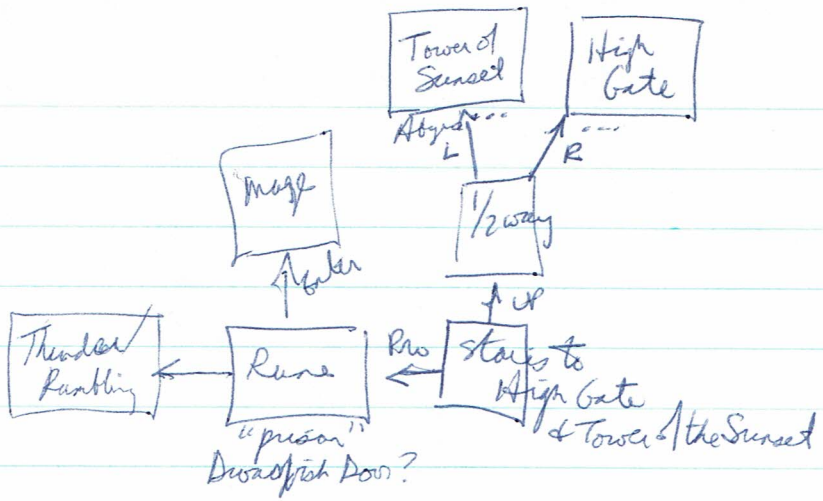 Tower of
Sunset
High
Gate
...
...
L
R
Mage
1/2 way
Enter
UP
Thunder/
Rumbling
Rune
Stairs to
High Gate
& Tower of the Sunset
"prison"
Dwarfish Door?